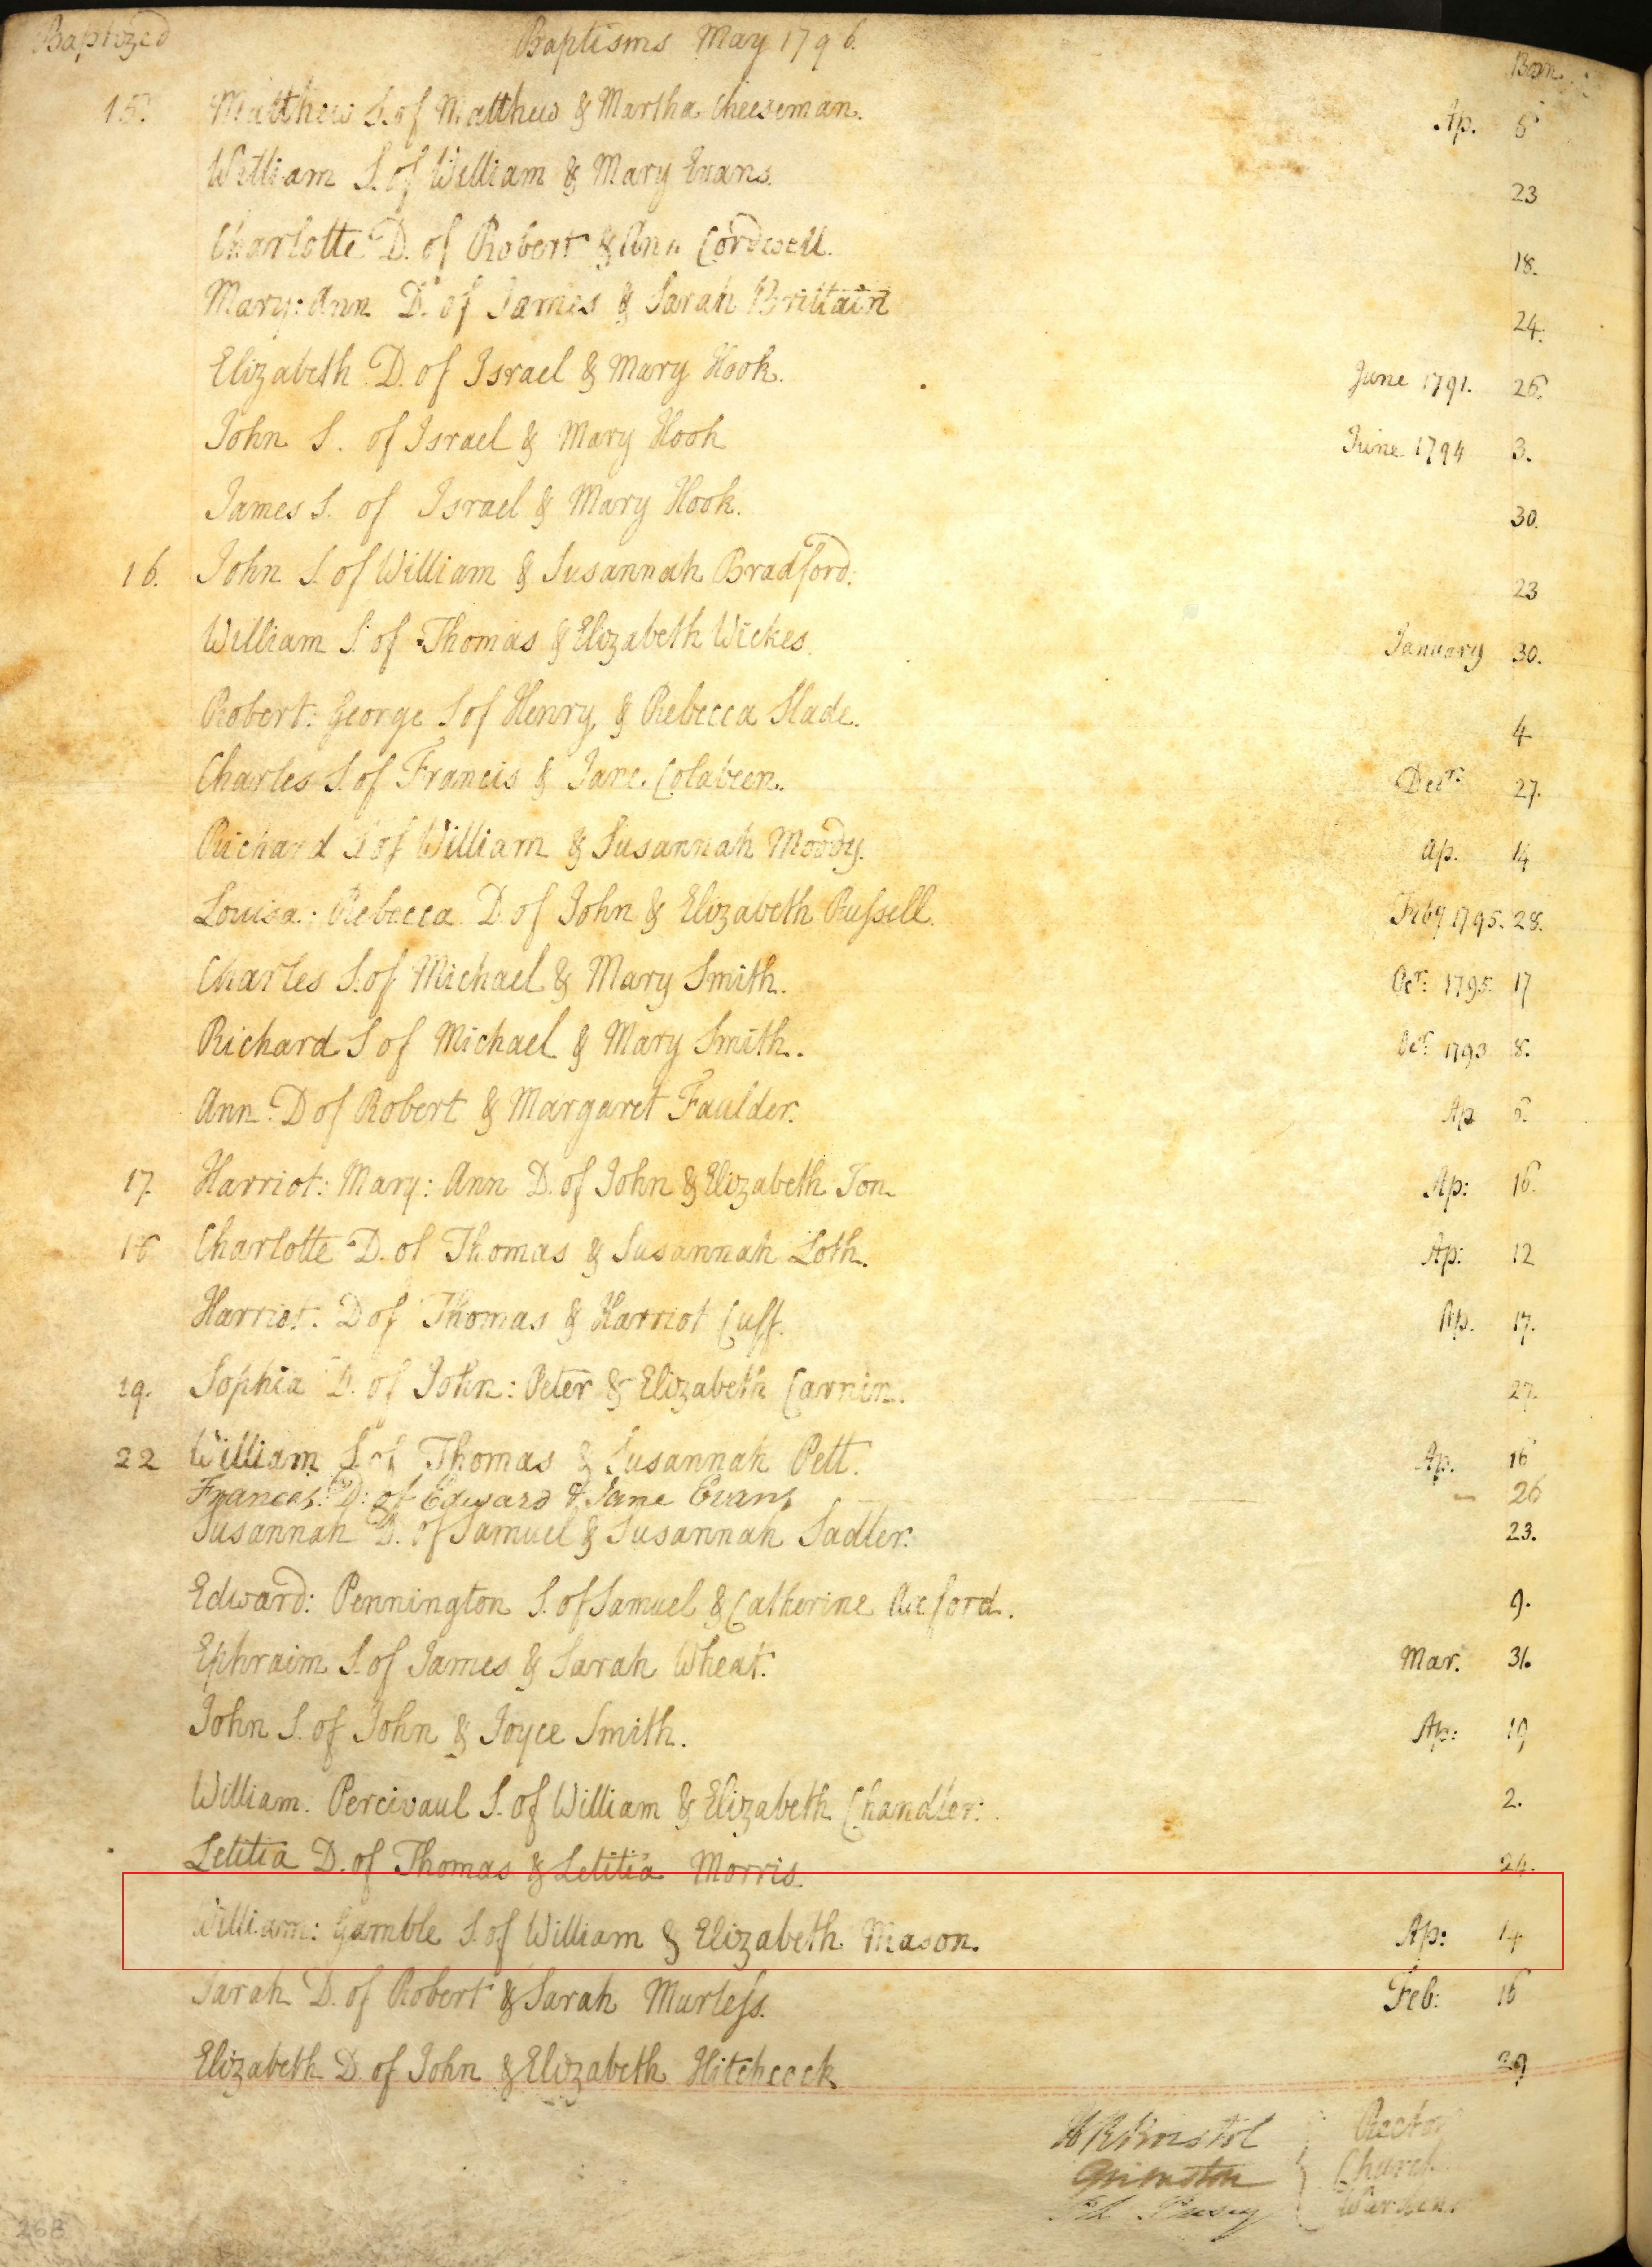 Baptized Baptisms May 1796. Born
15. Matthew S. of Matthew & Martha Cheeseman. Ap. 5
William S. of William & Mary Evans. 23
Charlotte D. of Robert & Ann Cordwell. 18.
Mary: Ann D. of James & Sarah Brittain 24.
Elizabeth D. of Israel & Mary Hook. June 1791. 26.
John S. of Israel & Mary Hook June 1794 3.
James S. of Israel & Mary Hook. 30.
16. John S. of William & Susannah Bradford. 23
William S. of Thomas & Elizabeth Wickes. January 30.
Robert: George S of Henry & Rebecca Slade. 4
Charles S. of Francis & Jane Colabeen. Decr. 27.
Richard S of William & Susannah Moody. Ap. 14
Louisa: Rebecca D. of John & Elizabeth Russell. Feby 1795. 28.
Charles S. of Michael & Mary Smith. Ocr: 1795. 17
Richard S of Michael & Mary Smith. Ocr: 1793 8.
Ann D of Robert & Margaret Faulder. Ap
17. Harriot: Mary: Ann D. of John & Elizabeth Ion. Ap: 16.
Charlotte D. of Thomas & Susannah Loth. Ap: 12
Harriot: D of Thomas & Harriot Cuff. Ap. 17.
19. Sophia D. of John: Peter & Elizabeth Carnin. 27.
22 William S. of Thomas & Susannah Pett. Ap. 16
Frances: D: of Edward & Jane Evans — 26
Susannah D. of Samuel & Susannah Sadler. 23.
Edward: Pennington S. of Samuel & Catherine 9.
Ephraim S. of James & Sarah Wheat. Mar. 31.
John S. of John & Joyce Smith. Ap: 19
William: Percivaul S. of William & Elizabeth Chandler: 2.
Letitia D. of Thomas & Letitia Morris. 24.
William: Gamble S. of William & Elizabeth Mason. Ap: 14
Sarah D. of Robert & Sarah Murless. Feb: 16
Elizabeth D. of John & Elizabeth Hitchcock 29
Rector
Grimston Church
Wardens
268